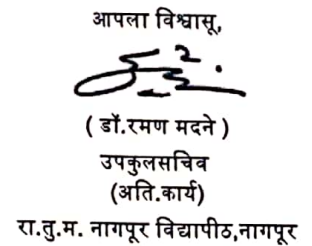 आपला विश्वासू,
( डॉ.रमण मदने )
उपकुलसचिव
(अति.कार्य)
रा.तु.म. नागपूर विद्यापीठ,नागपूर